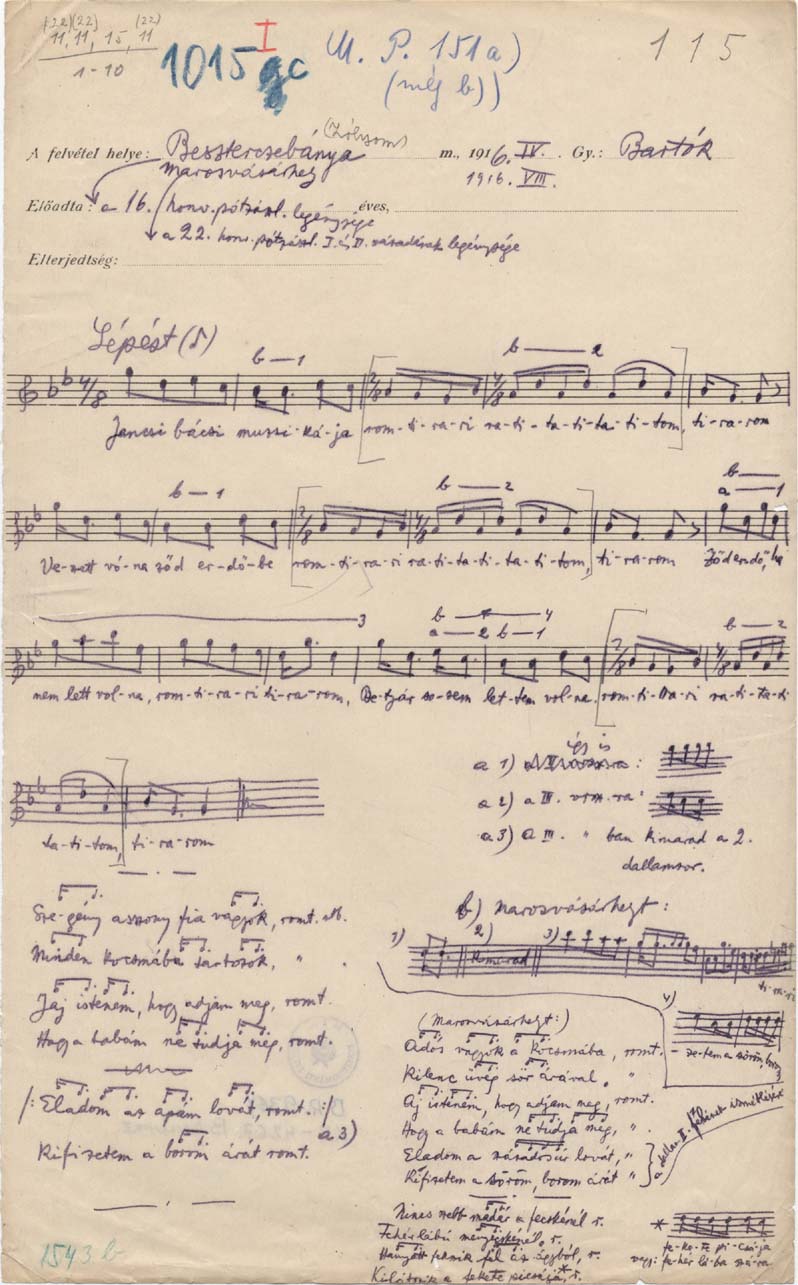 (22)(22) (22)
11, 11, 15, 11
1-10
I
1015 gc
M. P. 151a)
(még b))
115
A felvétel helye: Besztercebánya (Zólyom) m., 1916. IV. Gy.: Bartók
Marosvásárhely 1916. VIII.
Előadta: a 16. honv. pótzászl. legénysége éves,
a 22. honv. pótzászl. I. és II. századának legénysége
Elterjedtség:
Lépést (♪)
b — 1
b — 2
Jancsi bácsi muzsi-ká-ja rom-ti-ra-ri ra-ti-ta-ti-ta-ti-tom, ti-ra-rom
b — 1
b — 2
b —
a — 1
Ve-zett vó-na zöd er-dő-be rom-ti-ra-ri ra-ti-ta-ti-ta-ti-tom, ti-ra-rom Zöderdő, ha
3
b — 4
a — 2 b — 1
b — 2
nem lett vol-na, rom-ti-ra-ri ti-ra-rom, Be-tyár so-sem let-tem vol-na, rom-ti-ra-ri ra-ti-ta-ti
ta-ti-tom, ti-ra-rom
és is
a 1)
a 2) a III. vrsz.-ra:
a 3) a III. " ban kimarad a 2.
dallamsor.
Sze-gény asszony fia vagyok, romt. stb.
Minden kocsmába tartozok, "
Jaj istenem, hogy adjam meg, romt.
Hogy a babám ne tudja meg, romt.
/: Eladom az apám lovát, romt. :/
a 3)
Kifizetem a borom árát romt.
b) Marosvásárhelyt:
1) 2) 3)
Kimarad
ti-ra-ri
4)
- ze-tem a söröm, borom
(Marosvásárhelyt:)
Adós vagyok a kocsmába, romt.
Kilenc üveg sör árával, "
Aj istenem, hogy adjam meg, romt.
Hogy a babám ne tudja meg, "
Eladom a százados úr lovát, "
Kifizetem a söröm, borom árát "
a dallam II. felének ismétlésére
Nincs szebb madár a fecskénél r.
Fehérlábú menyecskénél, r.
Hanyatt fekszik fel az ágyból, r.
Kilátszik a fekete picsája,* r.
* fe-ke-te pi-csá-ja
vagy: fe-hér lá-ba szá-ra
1543 b